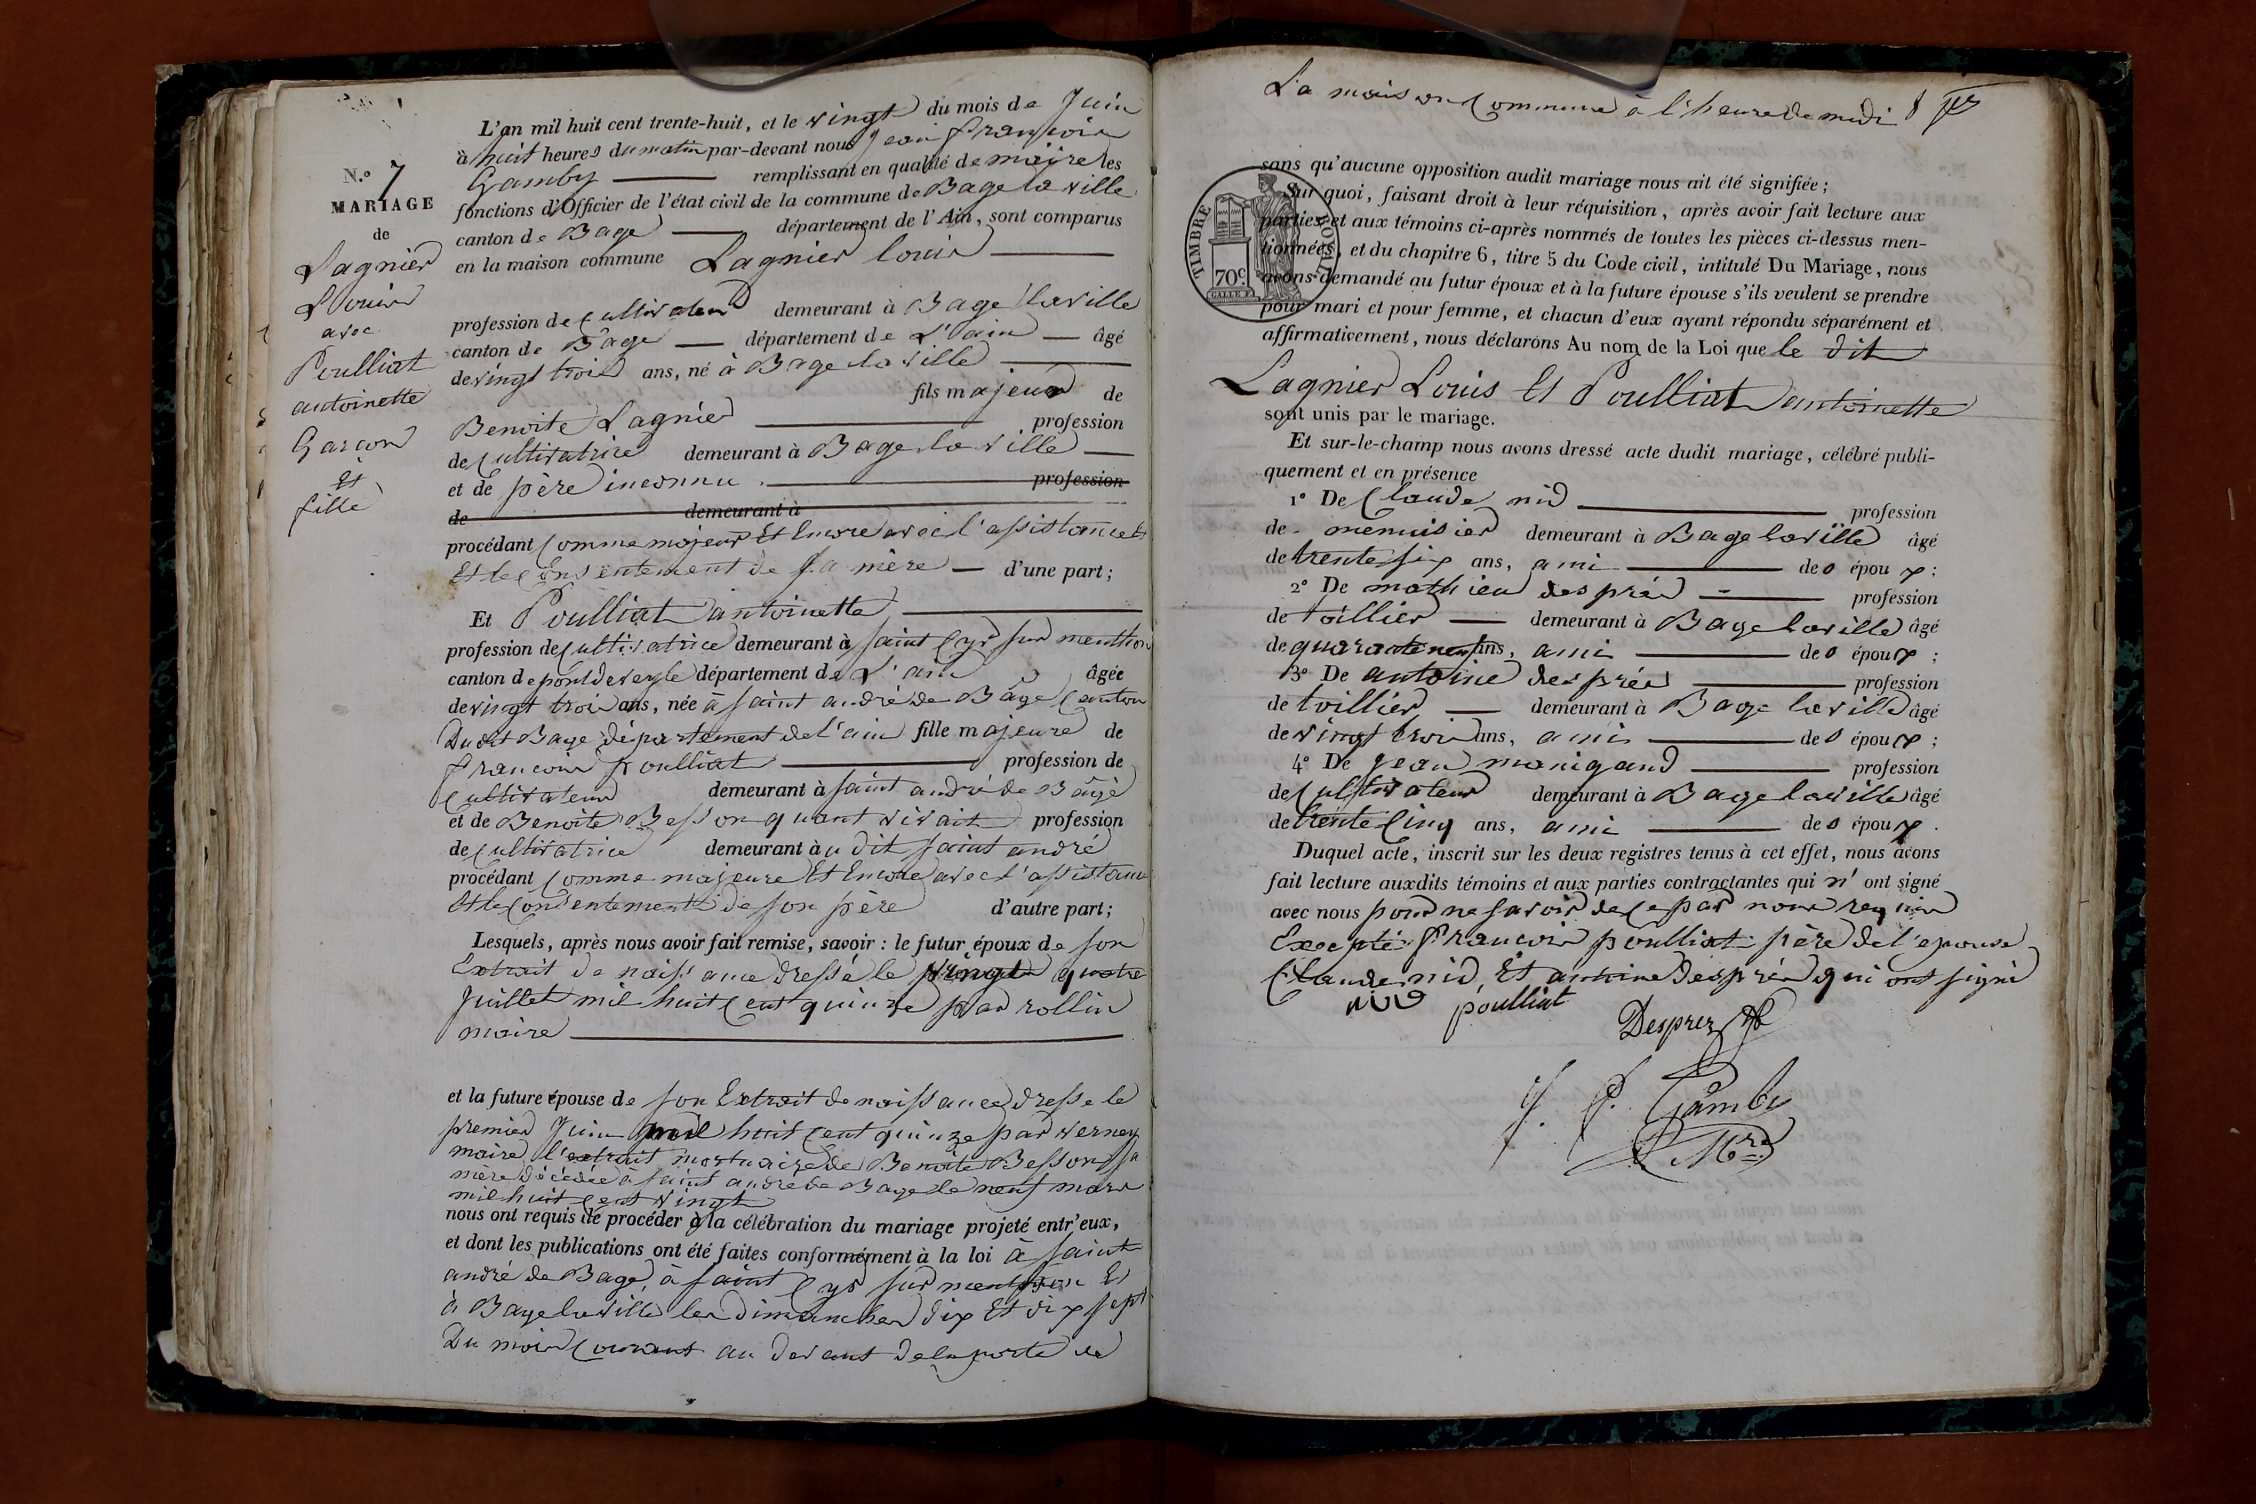 N.º 7
MARIAGE
de
Lagnier
Louis
avec
Poulliat
antoinette
Garcon
Et
fille
L'an mil huit cent trente-huit, et le vingt du mois de Juin
à huit heures du matin par-devant nous Jean françois
Gamby remplissant en qualité de maire les
fonctions d'Officier de l'état civil de la commune de Bage la ville
canton de Bage département de l'Ain, sont comparus
en la maison commune Lagnier louis
profession de Cultivateur demeurant à Bage laville
canton de Bage département de L'ain âgé
de vingt trois ans, né à Bage la ville
fils majeur de
Benoite Lagnier profession
de Cultivatrice demeurant à Bage la ville
et de père inconnu profession
de demeurant à
procédant Comme majeur Et Encore avec l'assistance
Et le Consentement de sa mère d'une part;
Et Poulliat antoinette
profession de Cultivatrice demeurant à saint Cyr sur menthon
canton de pont de veyle département de L'ain âgée
de vingt trois ans, née à saint andré de Bage Canton
Dudit Bage département de l'ain fille majeure de
francois poulliat profession de
Cultivateur demeurant à saint andré de Bagé
et de Benoite Besson quant vivait profession
de Cultivatrice demeurant àu dit saint andré
procédant Comme majeure Et Encore avec l'assistance
Et le Consentement de son père d'autre part;
Lesquels, après nous avoir fait remise, savoir : le futur époux de son
Extrait de naissance dressé le vingt quatre
Juillet mil huit Cent quinze par rollin
maire
et la future épouse de son Extrait de naissance dresse le
premier Juin mil huit Cent quinze par verney
maire l'extrait mortuaire de Benoite Besson sa
mère décédée à saint andré de Bage le neuf mars
mil huit Cent vingt
nous ont requis de procéder à la célébration du mariage projeté entr'eux,
et dont les publications ont été faites conformément à la loi à saint
andré de Bagé, à saint Cyr sur menthon Et
à Bage laville les dimanches dix Et dix sept
Du mois Courant au devant de la porte de
La maison Commune à l'heure de midi
sans qu'aucune opposition audit mariage nous ait été signifiée;
Sur quoi, faisant droit à leur réquisition, après avoir fait lecture aux
parties et aux témoins ci-après nommés de toutes les pièces ci-dessus men-
tionnées, et du chapitre 6, titre 5 du Code civil, intitulé Du Mariage, nous
avons demandé au futur époux et à la future épouse s'ils veulent se prendre
pour mari et pour femme, et chacun d'eux ayant répondu séparément et
affirmativement, nous déclarons Au nom de la Loi que le dit
TIMBRE ROYAL
70c.
Lagnier Louis Et Poulliat antoinette
sont unis par le mariage.
Et sur-le-champ nous avons dressé acte dudit mariage, célébré publi-
quement et en présence
1º De Claude nid profession
de menuisier demeurant à Bage laville âgé
de trente six ans, ami de l époux;
2º De mathieu després profession
de toillier demeurant à Bage laville âgé
de quarante neuf ans, ami de l époux;
3º De antoine després profession
de toillier demeurant à Bage laville âgé
de vingt trois ans, ami de l époux;
4º De Jean manigand profession
de Cultivateur demeurant à Bage laville âgé
de trente Cinq ans, ami de l époux.
Duquel acte, inscrit sur les deux registres tenus à cet effet, nous avons
fait lecture auxdits témoins et aux parties contractantes qui n'ont signé
avec nous pour ne savoir de Ce par nous requis
Excepté francois poulliat père de l'epouse
Claude nid Et antoine després qui ont signé
NID poulliat
Desprez
J. F. Gamby
Mre